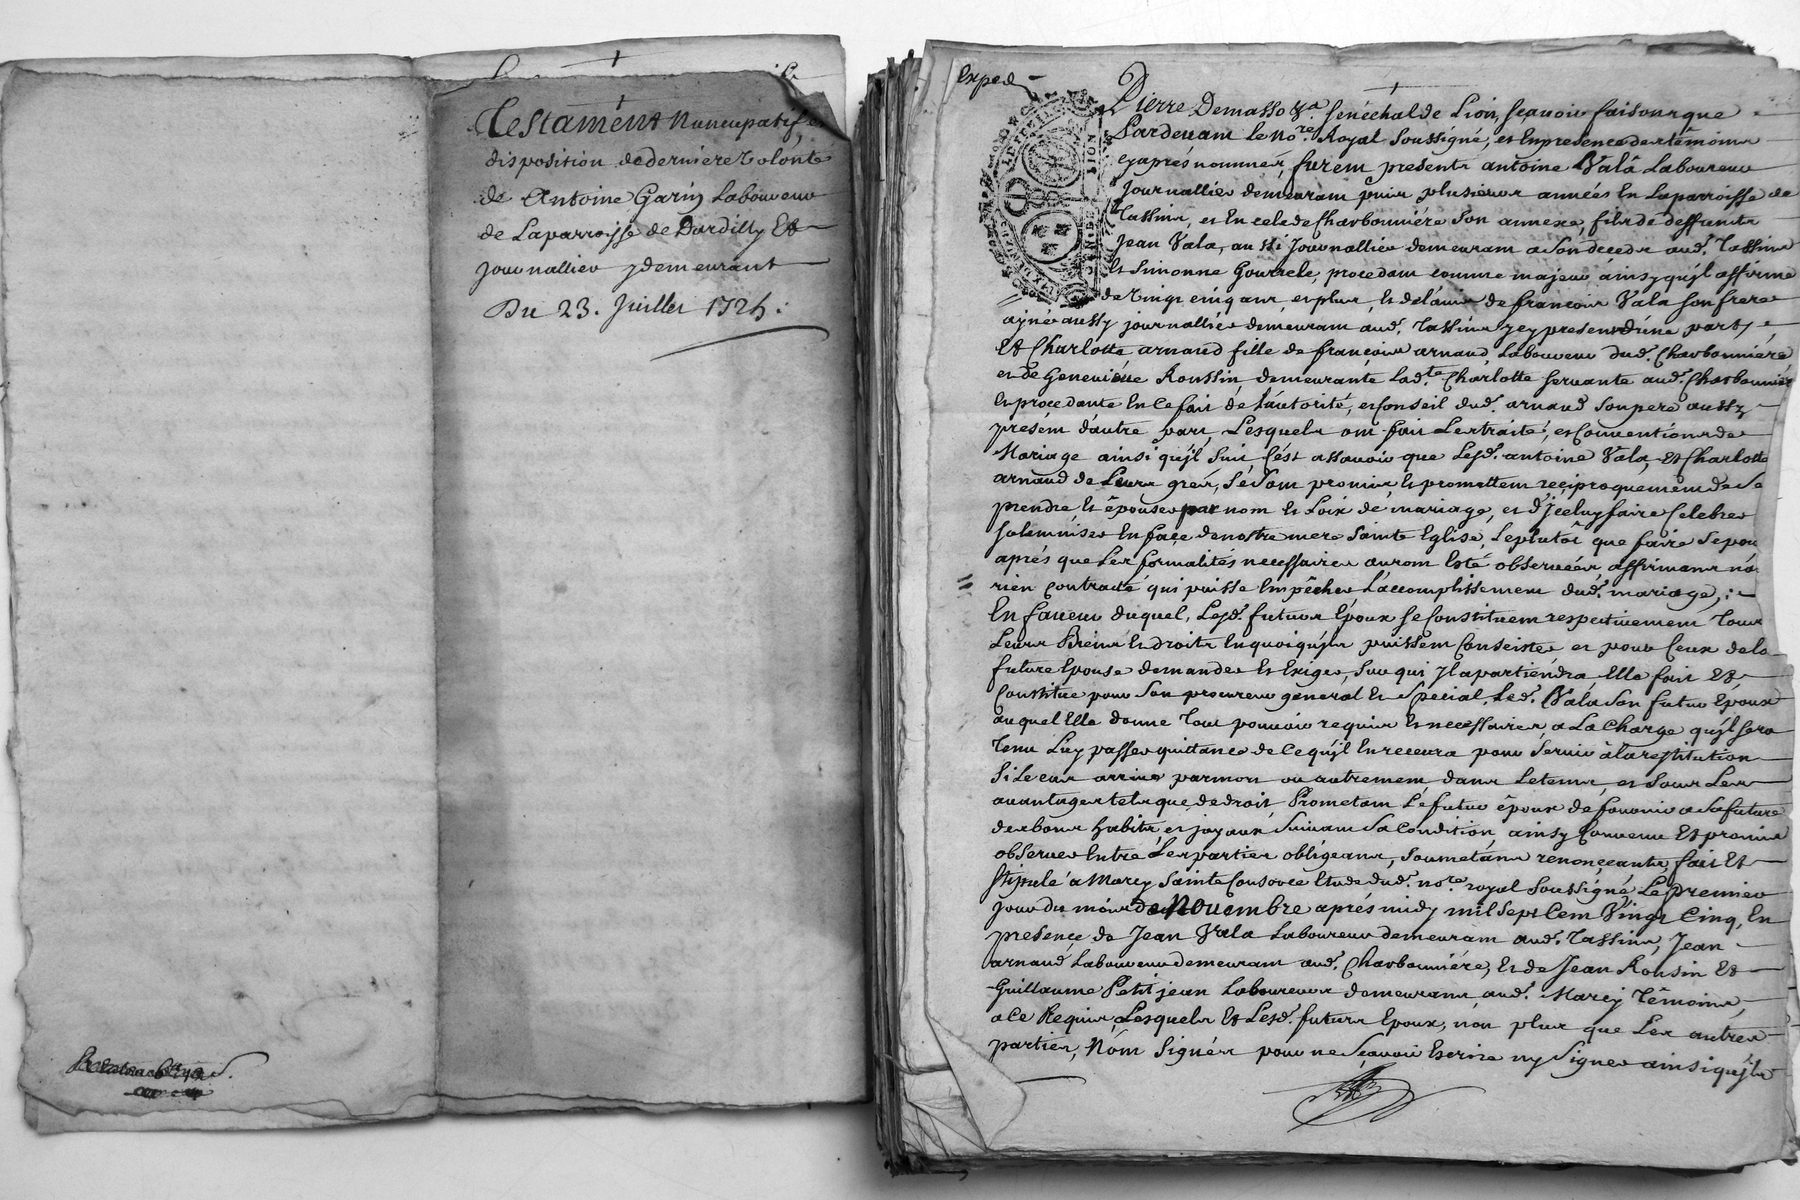 Testament Nuncupatif, et
disposition de derniere Volonte
de Antoine Garin Laboureur
de Laparroisse de Dardilly Et
journallier y demeurant
Du 23. Juillet 1725 :
Exped
Pierre Demasso &a. senéchal de Lion, sçavoir faisons que
Pardevant le nore. Royal soussigné, et En presence des témoins
cyaprés nommer, furent presents antoine Vala Laboureur
journallier demeurant puis plusieurs années En Laparroisse de
Tassins, et En cele de Charbonniére son annexe, fils de deffunts
Jean Vala, aussi journallier demeurant a son decedz aud. Tassins
Et Simonne Gourcele, procedant comme majeur áinsy qu'jl affirme
de Vingt cinq ans, et plus, Et de l'avis de françois Vala son frere
ajné aussy journallier demeurant aud. Tassins jcy present d'une part,
Et Charlotte arnaud fille de françois arnaud, Laboureur dud. Charbonniére
et de Geneviéve Roussin, demeurante Lad.te Charlotte servante aud. Charbonniére
En procedante En ce fait de L'autorité, et Conseil dud. arnaud son pere aussy
présent d'autre part, Lesquels ont fait Les traité, et Conventions de
Mariage ainsi qu'jl suit C'ést assavoir que Lesd. antoine Vala, Et Charlotte
arnaud de Leurs grés, Se sont promis, Et promettent reciproquement de Se
prendre, Et épouser par nom Et Loix de mariage, et d'jceluy faire Celebrer
solemniser En façe de nostre mere Sainte Eglise, Le plutôt que faire Se pou
aprés que Les formalités necessaires auront Esté observées affirmans n'a
rien Contracté qui puisse Empêcher L'accomplissement dud. mariage, :
En faveur duquel, Lesd. futurs Epoux se Constituent respectivement Tous
Leurs Biens Et droits En quoiqu'jls puissent Consister et pour Ceux de la
future Epouse demander Et Exiger, sur qui Jl apartiendra, Elle fait Et
Constitue pour Son procureur general Et Special, Led. Vala Son futur Epoux
auquel Elle donne Tout pouvoir requis Et necessaires, a La Charge qu'jl sera
Tenu Luy passer quittance de Ce qu'jl En recevra pour Servir à La restitution
Si Le cas arrive par mort ou autrement dans Letems, et sous Les
avantages tels que de droit Prometant Le futur époux de fournir a Sa future
des bons habits, et joyaux Suivant Sa Condition, ainsy Convenu Et promis
observer Entre Les parties obligeans, soumetans renonçeants, fait Et
Stipulé a Marcy Sainte Consorce Etude dud. nore. royal Soussigné, Le premier
jour du mois de Novembre aprés midy mil Sept Cent Vingt Cinq, En
presençe de Jean Vala Laboureur demeurant aud. Tassins, Jean
arnaud Laboureur demeurant aud. Charbonniére, Et de Jean Rousin Et
Guillaume Petit jean Laboureurs demeurans aud. Marcy Témoins,
a Ce Requis, Lesquels Et Lesd. futurs Epoux, non plus que Les autres
parties, N'ont Signés pour ne Sçavoir Escrire ny Signer ainsi qu'jls